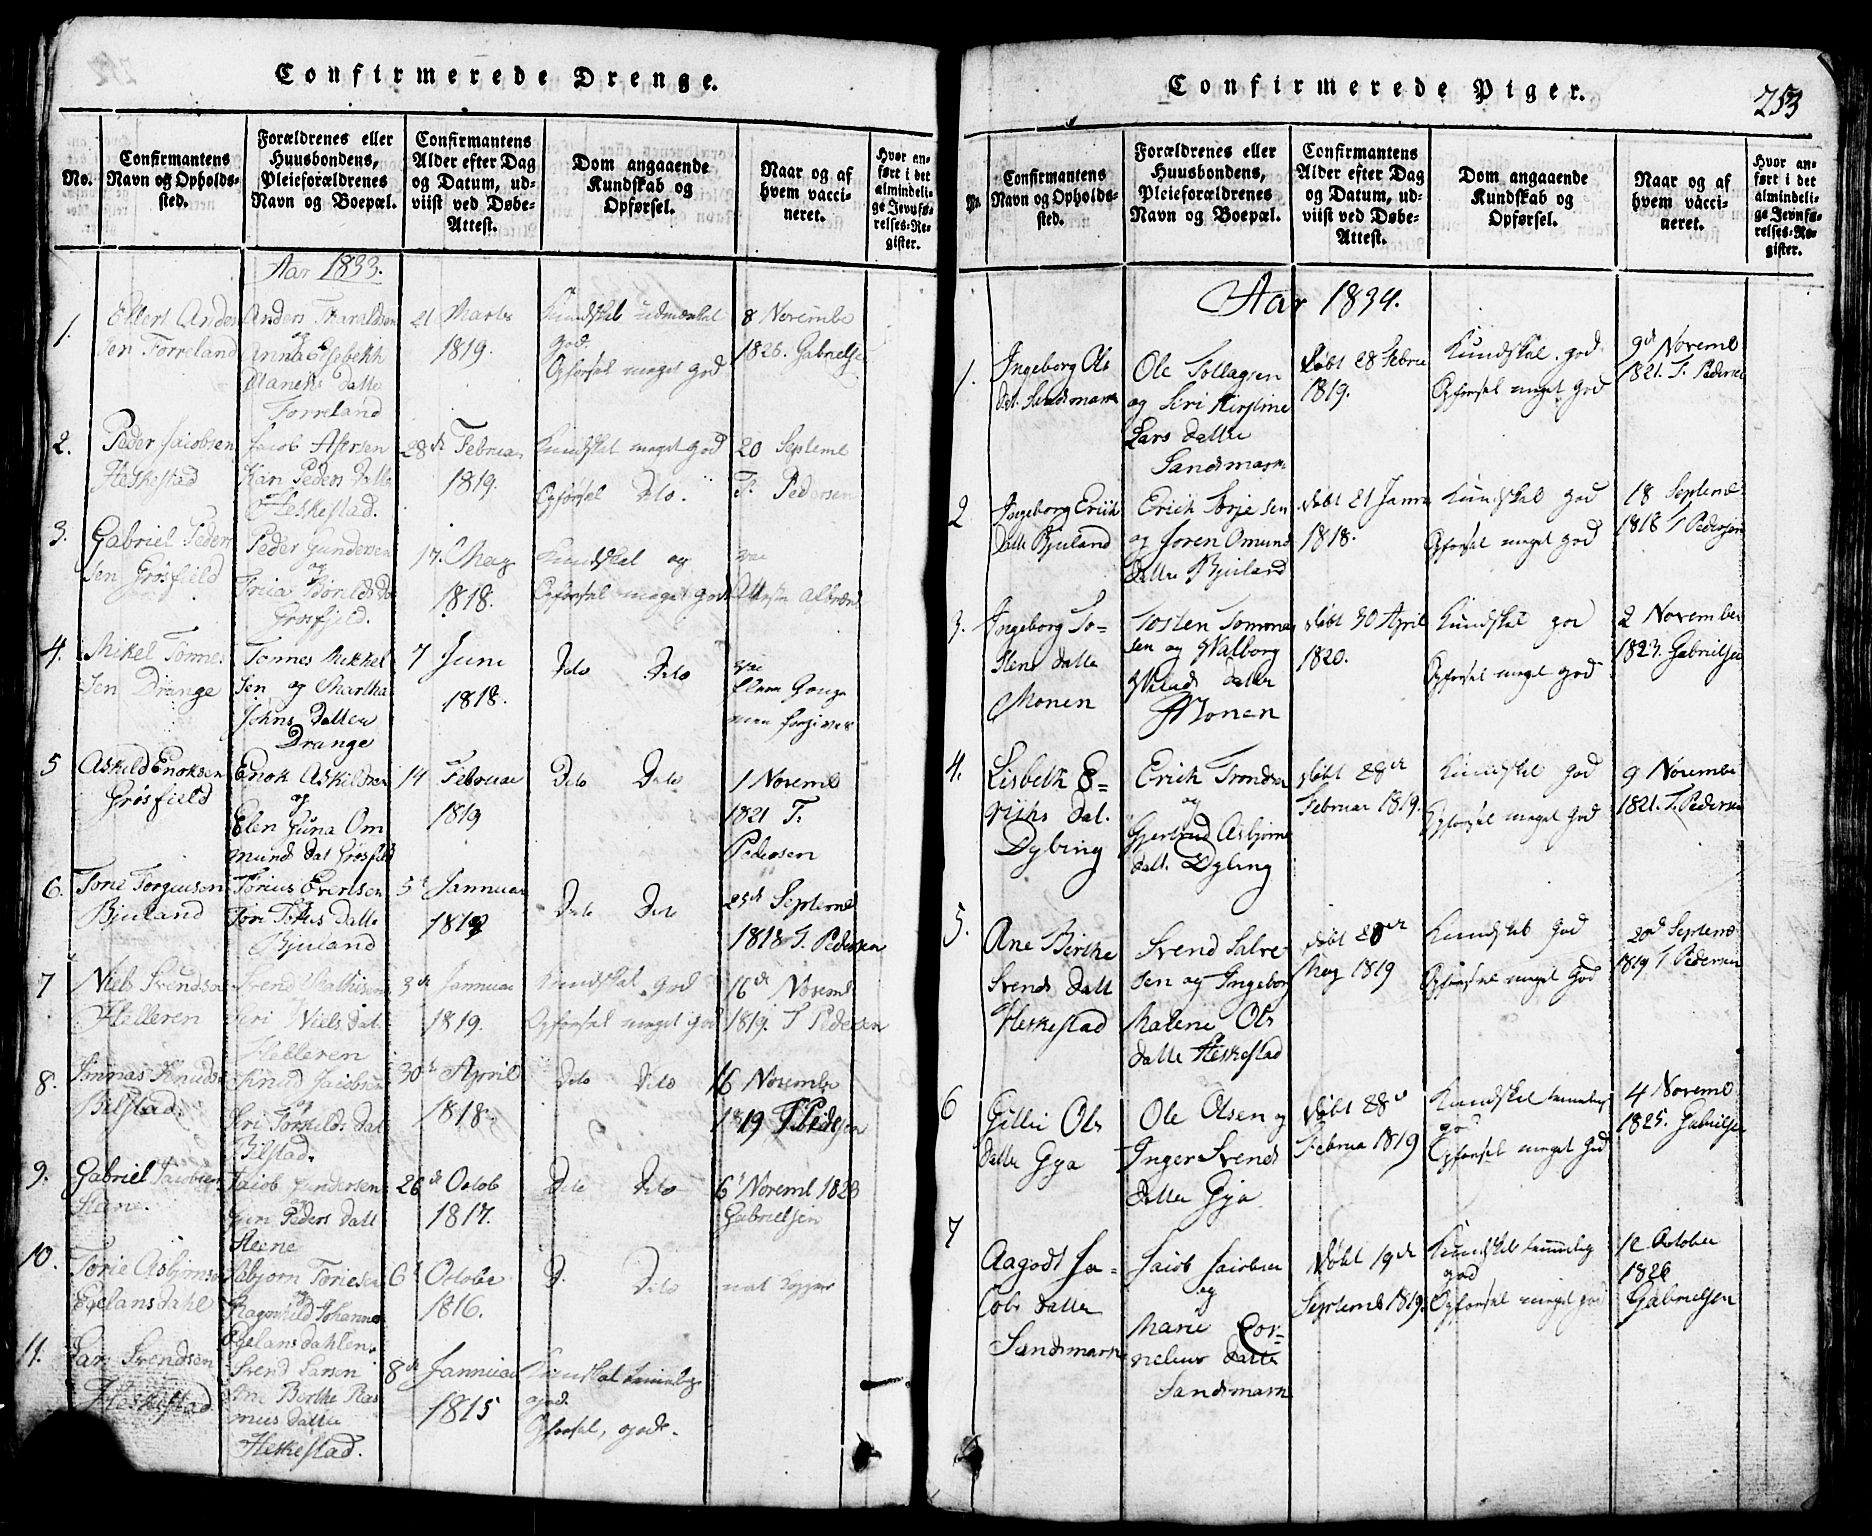 Confirmerede Drenge.
No.
Confirmantens
Navn og Opholds-
sted.
Forældrenes eller
Huusbondens,
Pleieforældrenes
Navn og Boepæl.
Confirmantens
Alder efter Dag
og Datum, ud-
viist ved Døbe-
Attest.
Dom angaaende
Kundskab og
Opførsel.
Naar og af
hvem vacci-
neret.
Hvor an-
ført i det
almindeli-
ge Jevnfø-
relses-Re-
gister.
Aar 1833.
1.
Ellert Anders
sen Forreland
Anders Tharaldsen
og
Anna Elsebekh
datter
Forreland
21 Marts
1819.
Kundskab udmærket
god.
Opførsel meget god
8 Novembr
1826. Gabrielsen
2.
Peder Jacobsen
Heskestad
Jacob Asersen
Kari Peders datter
Heskestad.
28de Februar
1819.
Kundskab meget god
Opførsel Dito.
20 Septemb
T. Pedersen
3.
Gabriel Peder
sen Grøsfield
Peder Gundersen
og
Grøsfield.
17. May
1818.
Kundskab og
Opførsel meget god
4.
Mikel Tønne
sen Drange
Tønnes Mikkel
sen og Martha
Johns Datter
Drange
7 Juni
1818.
Dito Dito
5
Askild Enoksen
Grøsfield
Enok Askildsen
og
Elen Guna Om
munds dat Grøsfield
14 Februar
1819
Dito Dito
1 Novemb
1821 T.
Pedersen
6.
Tone Torgiusen
Bjuland
Torius Evertsen
Bjuland
5te Januar
1819
Dito Dito
25de Septemb
1818 T. Pedersen
7
Niels Svendsen
Helleren
Svend Mathisen
og
Siri Niels dat.
Helleren
3de Januar
1819.
Kundskab god
Opførsel meget god
16de Novemb
1819. T Pedersen
8.
Jonnas Knudsen
Bilstad.
Knud Jacobsen
og
Siri Torkilds dat
Bilstad.
30te April
1818.
Dito Dito
16 Novembr
1819 T. Pedersen
9.
Gabriel Jacobsen
Steene.
Jacob Gundersen
og
Peders datt
Steene
26de Octob
1817.
Dito Dito
6te Novemb 1823
Gabrielsen
10.
Torie Asbjørnsen
Egelandsdahl
Asbjørn Toriesen
og
Ragnhild Johannes
Egelansdahlen.
6te Octobe
1816.
D. Dito
11.
Lars Svendsen
Heskestad
Svend Larsen
Berthe Ras
mus datter
Heskestad.
8de Januar
1815
Kundskab temelig
god.
Opførsel, godt.
Confirmerede Piger.
253
No.
Confirmantens
Navn og Opholds-
sted.
Forældrenes eller
Huusbondens,
Pleieforældrenes
Navn og Boepæl.
Confirmantens
Alder efter Dag
og Datum, ud-
viist ved Døbe-
Attest.
Dom angaaende
Kundskab og
Opførsel.
Naar og af
hvem vacci-
neret.
Hvor an-
ført i det
almindeli-
ge Jevnfø-
relses-Re-
gister.
Aar 1834.
1.
Ingeborg Ols
dat. Sandsmark
Ole Tollagsen
og Siri Kirstine
Lars datter
Sandsmark
døbt 28 Febru
1819.
Kundskab god
Opførsel meget god
9de Novemb
1821. T. Pedersen
2
Ingeborg Erich
datter Bjuland
Erich Torje sen
og Joren Omund
datter Bjuland
døbt 21 Janu
1818.
Kundskab god
Opførsel meget god
18 Septemb
1818 T Pedersen
3.
Ingeborg To-
stens datter
Monen
Tosten Tommes
sen og Walborg
datter
Monen
døbt 30 April
1820.
Kundskab god
Opførsel meget god
2 November
1823. Gabrielsen
4.
Lisbeth E-
richs dat.
Dybing
Erich Trondsen
og
Gjertrud Asbjørns
datt. Dybing
døbt 28de
Februar 1819.
Kundskab god
Opførsel meget god
9 Novembr
1821. T. Pedersen
5.
Ane Birthe
Svends datt
Heskestad
Svend Salve
sen og Ingeborg
Malene Ols
datter Heskestad
døbt 20de
May 1819
Kundskab god
Opførsel meget god
20de Septemb
1819 T Pedersen
6
Gillie Ols
datter Gya
Ole Olsen og
Inger Svends
datter Gya
døbt 28de
Februar 1819
Kundskab temmelig
god
Opførsel meget god
4 Novemb
1825. Gabrielsen
7
Aagodt Ja-
cobs datter
Sandsmark
Jacob Jacobsen
og
Marie Cor-
nelius datter
Sandsmark
Døbt 19de
Septemb 1819.
Kundskab temmelig
god
Opførsel meget god
12 October
1826
Gabrielsen